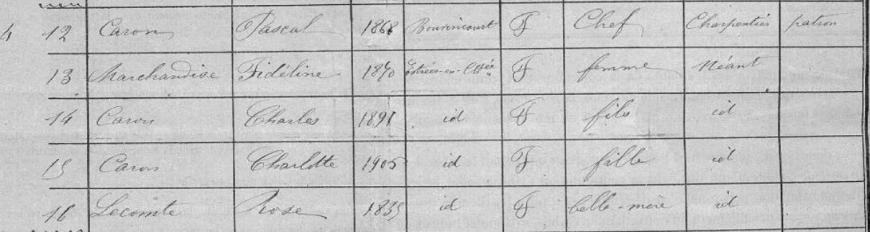 4 12 Caron Pascal 1868 Bouvincourt F Chef Charpentier patron
13 Marchandise Fidéline 1870 Estrées-en-Chée F femme Néant
14 Caron Charles 1891 id F fils id
15 Caron Charlotte 1905 id F fille id
16 Lecomte Rose 1835 id F belle-mère id